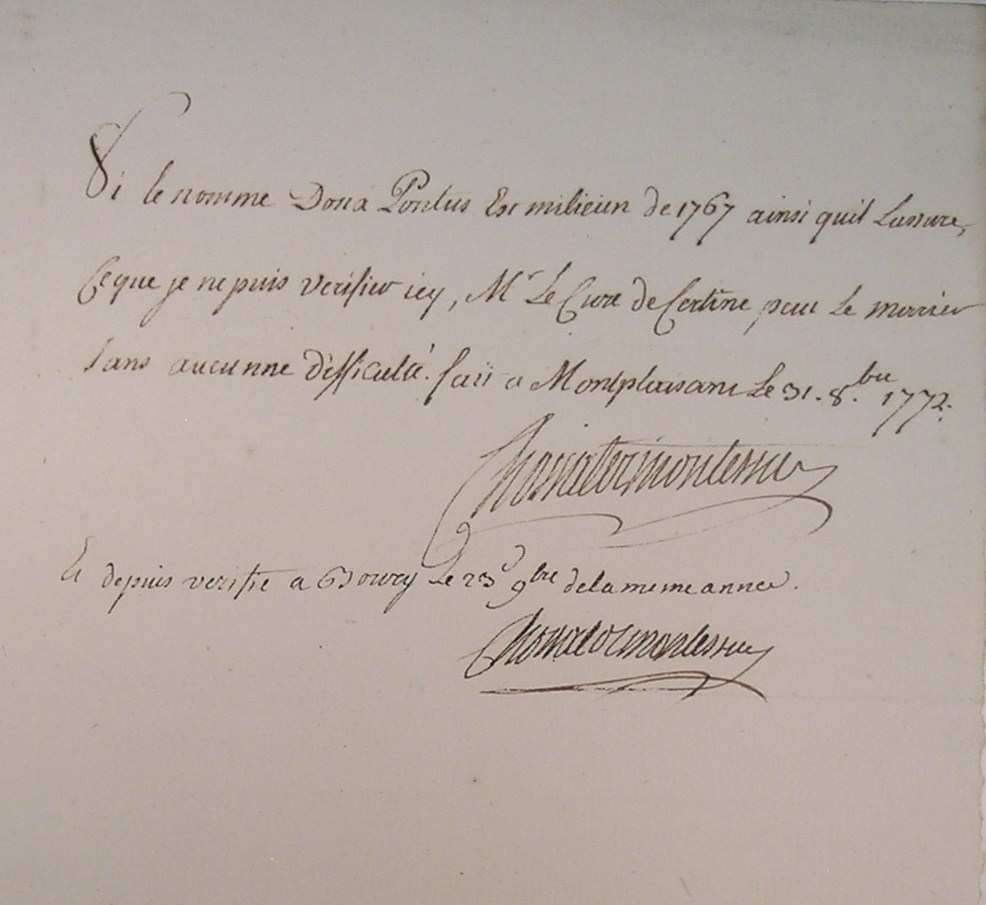 Si le nomme Doux Pontus Est milicien de 1767 ainsi quil Lassure,
Ce que je ne puis verifier icy, Mr Le Cure de Certine peut Le marier
sans aucunne difficulté. fait a Montplaisant Le 31. 8.bre 1772.
Et depuis verifie a Bourg Le 23 9bre de la meme année.